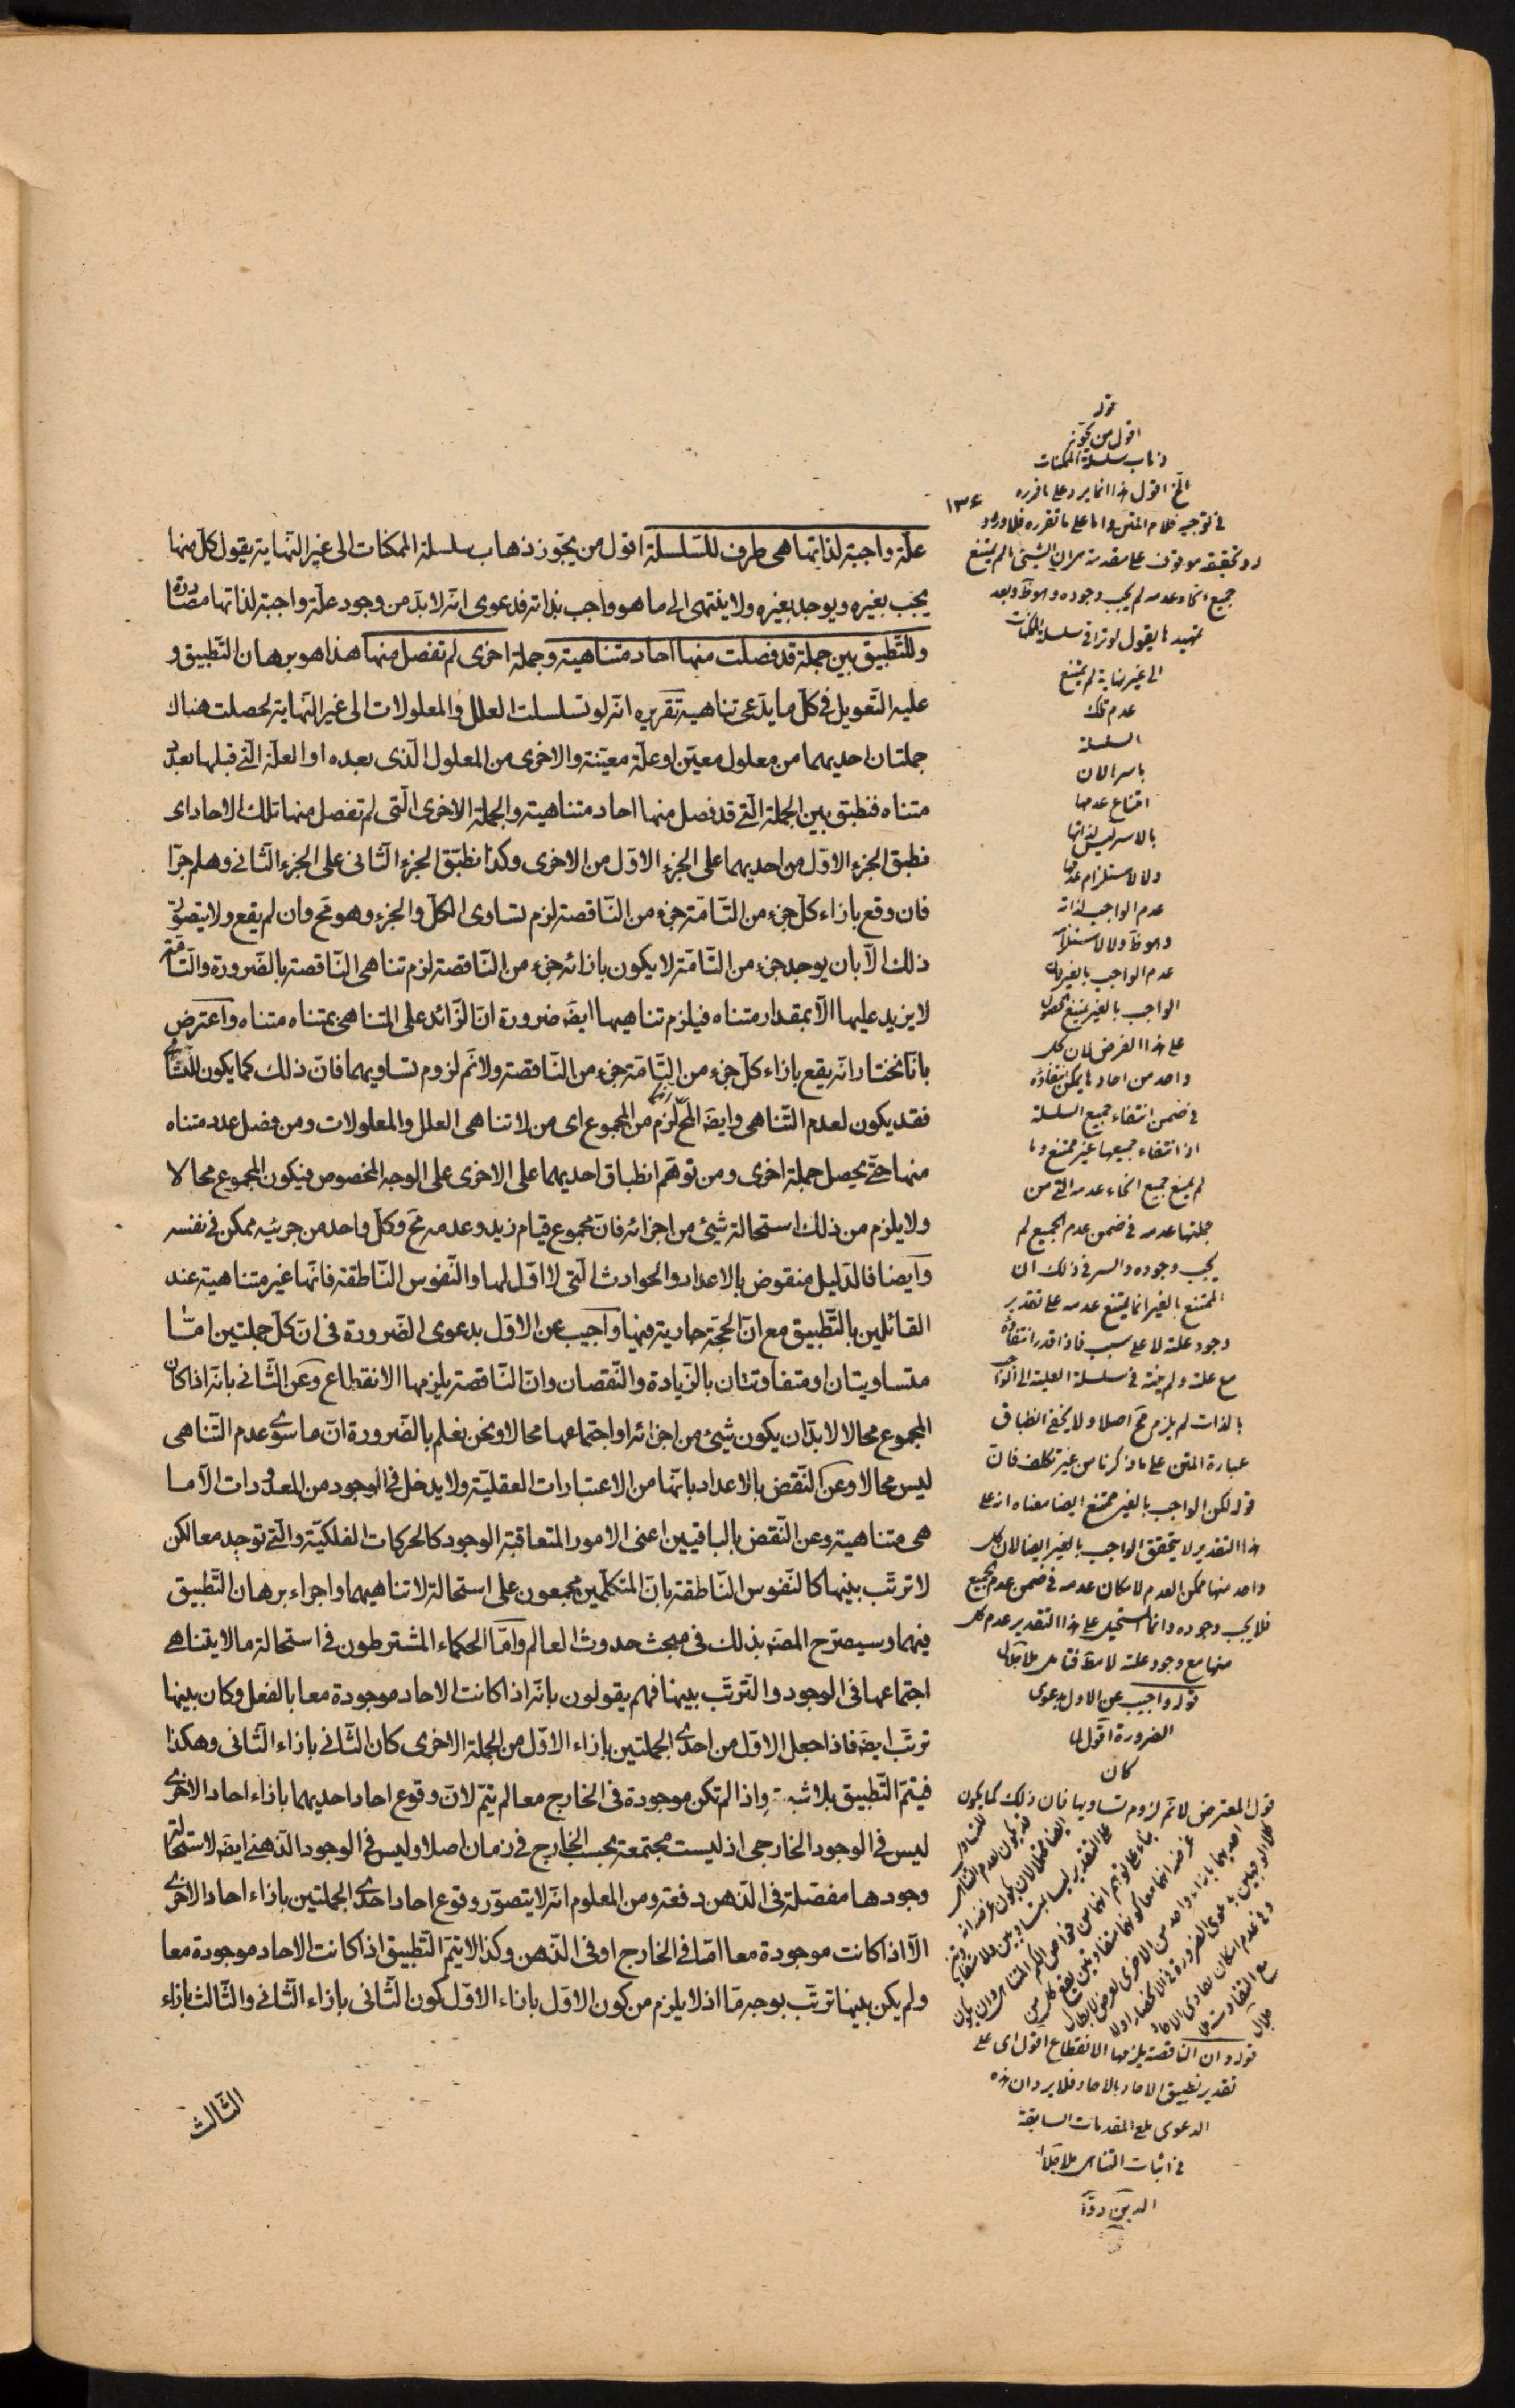 علّة واجبة لذاتها هى طرف للسّلسلة اقول من يجوّز ذهاب سلسلة الممكنات الى غير النّهاية يقول كلّ منها
يجب بغيره ويوجد بغيره ولا ينتهى الى ما هو واجب بذاته فدعوى انّه لابدّ من وجود علّة واجبة لذاتها مصادرة
وللتّطبيق بين جملة قد فصلت منها احاد متناهية وجملة اخرى لم تفصل منها هذا هو برهان التّطبيق و
عليه التّعويل فى كلّ ما يدّعى تناهيه تقريره انّه لو تسلسلت العلل والمعلولات الى غير النّهاية لحصلت هناك
جملتان احديهما من معلول معيّن او علّة معيّنة والاخرى من المعلول الّذى بعده او العلّة الّتى قبلها بعدد
متناه فنطبق بين الجملة الّتى قد فصل منها احاد متناهية والجملة الاخرى الّتى لم تفصل منها تلك الاحاد اى
نطبق الجزء الاوّل من احديهما على الجزء الاوّل من الاخرى وكذا نطبّق الجزء الثّانى على الجزء الثّانى وهلم جرّا
فان وقع بازاء كلّ جزء من التّامّة جزء من النّاقصة لزم تساوى الكلّ والجزء وهو مح وان لم يقع ولا يتصوّر
ذلك الّا بان يوجد جزء من التّامّة لا يكون بازائه جزء من النّاقصة لزم تناهى النّاقصة بالضّرورة والتّامّة
لا يزيد عليها الّا بمقدار متناه فيلزم تناهيهما ايضَ ضرورة انّ الزّائد على المتناهى بمتناه متناه واعترض
بانّا نختار انّه يقع بازاء كلّ جزء من التّامّة جزء من النّاقصة ولا نم لزوم تساويهما فانّ ذلك كما يكون للتّساوى
فقد يكون لعدم التّناهى وايضَ المح لزم من المجموع اى من لا تناهى العلل والمعلولات ومن فصل عدد متناه
منها حتّى يحصل جملة اخرى ومن توهّم انطباق احديهما على الاخرى على الوجه المخصوص فيكون المجموع محالا
ولا يلزم من ذلك استحالة شيئ من اجزائه فانّ مجموع قيام زيد وعدمه مح وكلّ واحد من جزئيه ممكن فى نفسه
وايضا فالدّليل منقوض بالاعداد والحوادث الّتى لا اوّل لها والنّفوس النّاطقة فانّها غير متناهية عند
القائلين بالتّطبيق مع انّ الحجّة جارية فيها واجيب عن الاوّل بدعوى الضّرورة فى انّ كلّ جملتين امّا
متساويتان او متفاوتتان بالزّيادة والنّقصان وانّ النّاقصة يلزمها الانقطاع وعن الثّانى بانّه اذا كان
المجموع محالا لابدّ ان يكون شيئ من اجزائه او اجتماعها محالا ونحن نعلم بالضّرورة انّ ما سوى عدم التّناهى
ليس محالا وعن النّقض بالاعداد بانّها من الاعتبارات العقليّة ولا يدخل فى الوجود من المعدودات الّا ما
هى متناهية وعن النّقض بالباقيين اعنى الامور المتعاقبة الوجود كالحركات الفلكيّة والّتى توجد معا لكن
لا ترتّب بينها كالنّفوس النّاطقة بانّ المتكلّمين مجمعون على استحالة لا تناهيهما واجراء برهان التّطبيق
فيهما وسيصرّح المصَه بذلك فى مبحث حدوث العالم وامّا الحكماء المشترطون فى استحالة ما لا يتناهى
اجتماعها فى الوجود والتّرتّب بينها فهم يقولون بانّه اذا كانت الاحاد موجودة معا بالفعل وكان بينها
ترتّب ايضَ فاذا جعل الاوّل من احدى الجملتين بازاء الاوّل من الجملة الاخرى كان الثّانى بازاء الثّانى وهكذا
فيتمّ التّطبيق بلا شبهة واذا لم تكن موجودة فى الخارج معا لم يتمّ لانّ وقوع احاد احديهما بازاء احاد الاخرى
ليس فى الوجود الخارجى اذ ليست مجتمعة بحسب الخارج فى زمان اصلا وليس فى الوجود الذّهنى ايضَ لاستحالة
وجودها مفصّلة فى الذّهن دفعة ومن المعلوم انّه لا يتصوّر وقوع احاد احدى الجملتين بازاء احاد الاخرى
الّا اذا كانت موجودة معا امّا فى الخارج او فى الذّهن وكذا لا يتمّ التّطبيق اذا كانت الاحاد موجودة معا
ولم يكن بينها ترتّب بوجه مّا اذ لا يلزم من كون الاوّل بازاء الاوّل كون الثّانى بازاء الثّانى والثّالث بازاء
الثّالث
قوله
اقول من يجوّز
ذهاب سلسلة الممكنات
الخ اقول هذا انما يرد على ما قرره
١٣٤
جميع انحاء عدمه لم يجب وجوده
الى غير نهاية لم يمتنع
عدم تلك
السلسلة
باسرها لان
امتناع عدمها
بالاسر ليس لذاتها
ولا لاستلزام عدمها
عدم الواجب لذاته
عدم الواجب بالغير لان
على هذا الفرض لان كل
واحد من احادها يمكن انتفاؤه
فى ضمن انتفاء جميع السلسلة
اذ انتفاء جميعها غير ممتنع وما
لم يمتنع جميع انحاء عدمه التى من
جملتها عدمه فى ضمن عدم الجميع لم
يجب وجوده والسر فى ذلك ان
الممتنع بالغير انما يمتنع عدمه على تقدير
بالذات لم يلزم مح اصلا ولا يخفى انطباق
عبارة المتن على ما ذكرنا من غير تكلف فان
قوله لكن الواجب بالغير ممتنع ايضا معناه انه على
هذا التقدير لا يتحقق الواجب بالغير ايضا لان كل
واحد منها ممكن العدم لامكان عدمه فى ضمن عدم الجميع
فلا يجب وجوده وانما المستحيل على هذا التقدير عدم كل
قوله واجيب عن الاول بدعوى
الضرورة اقول لما
كان
قول المعترض لا نم لزوم تساويها فان ذلك كما يكون
قوله وان الناقصة يلزمها الانقطاع اقول اى على
تقدير تطبيق الاحاد بالاحاد فلا يرد ان هذه
الدعوى مع المقدمات السابقة